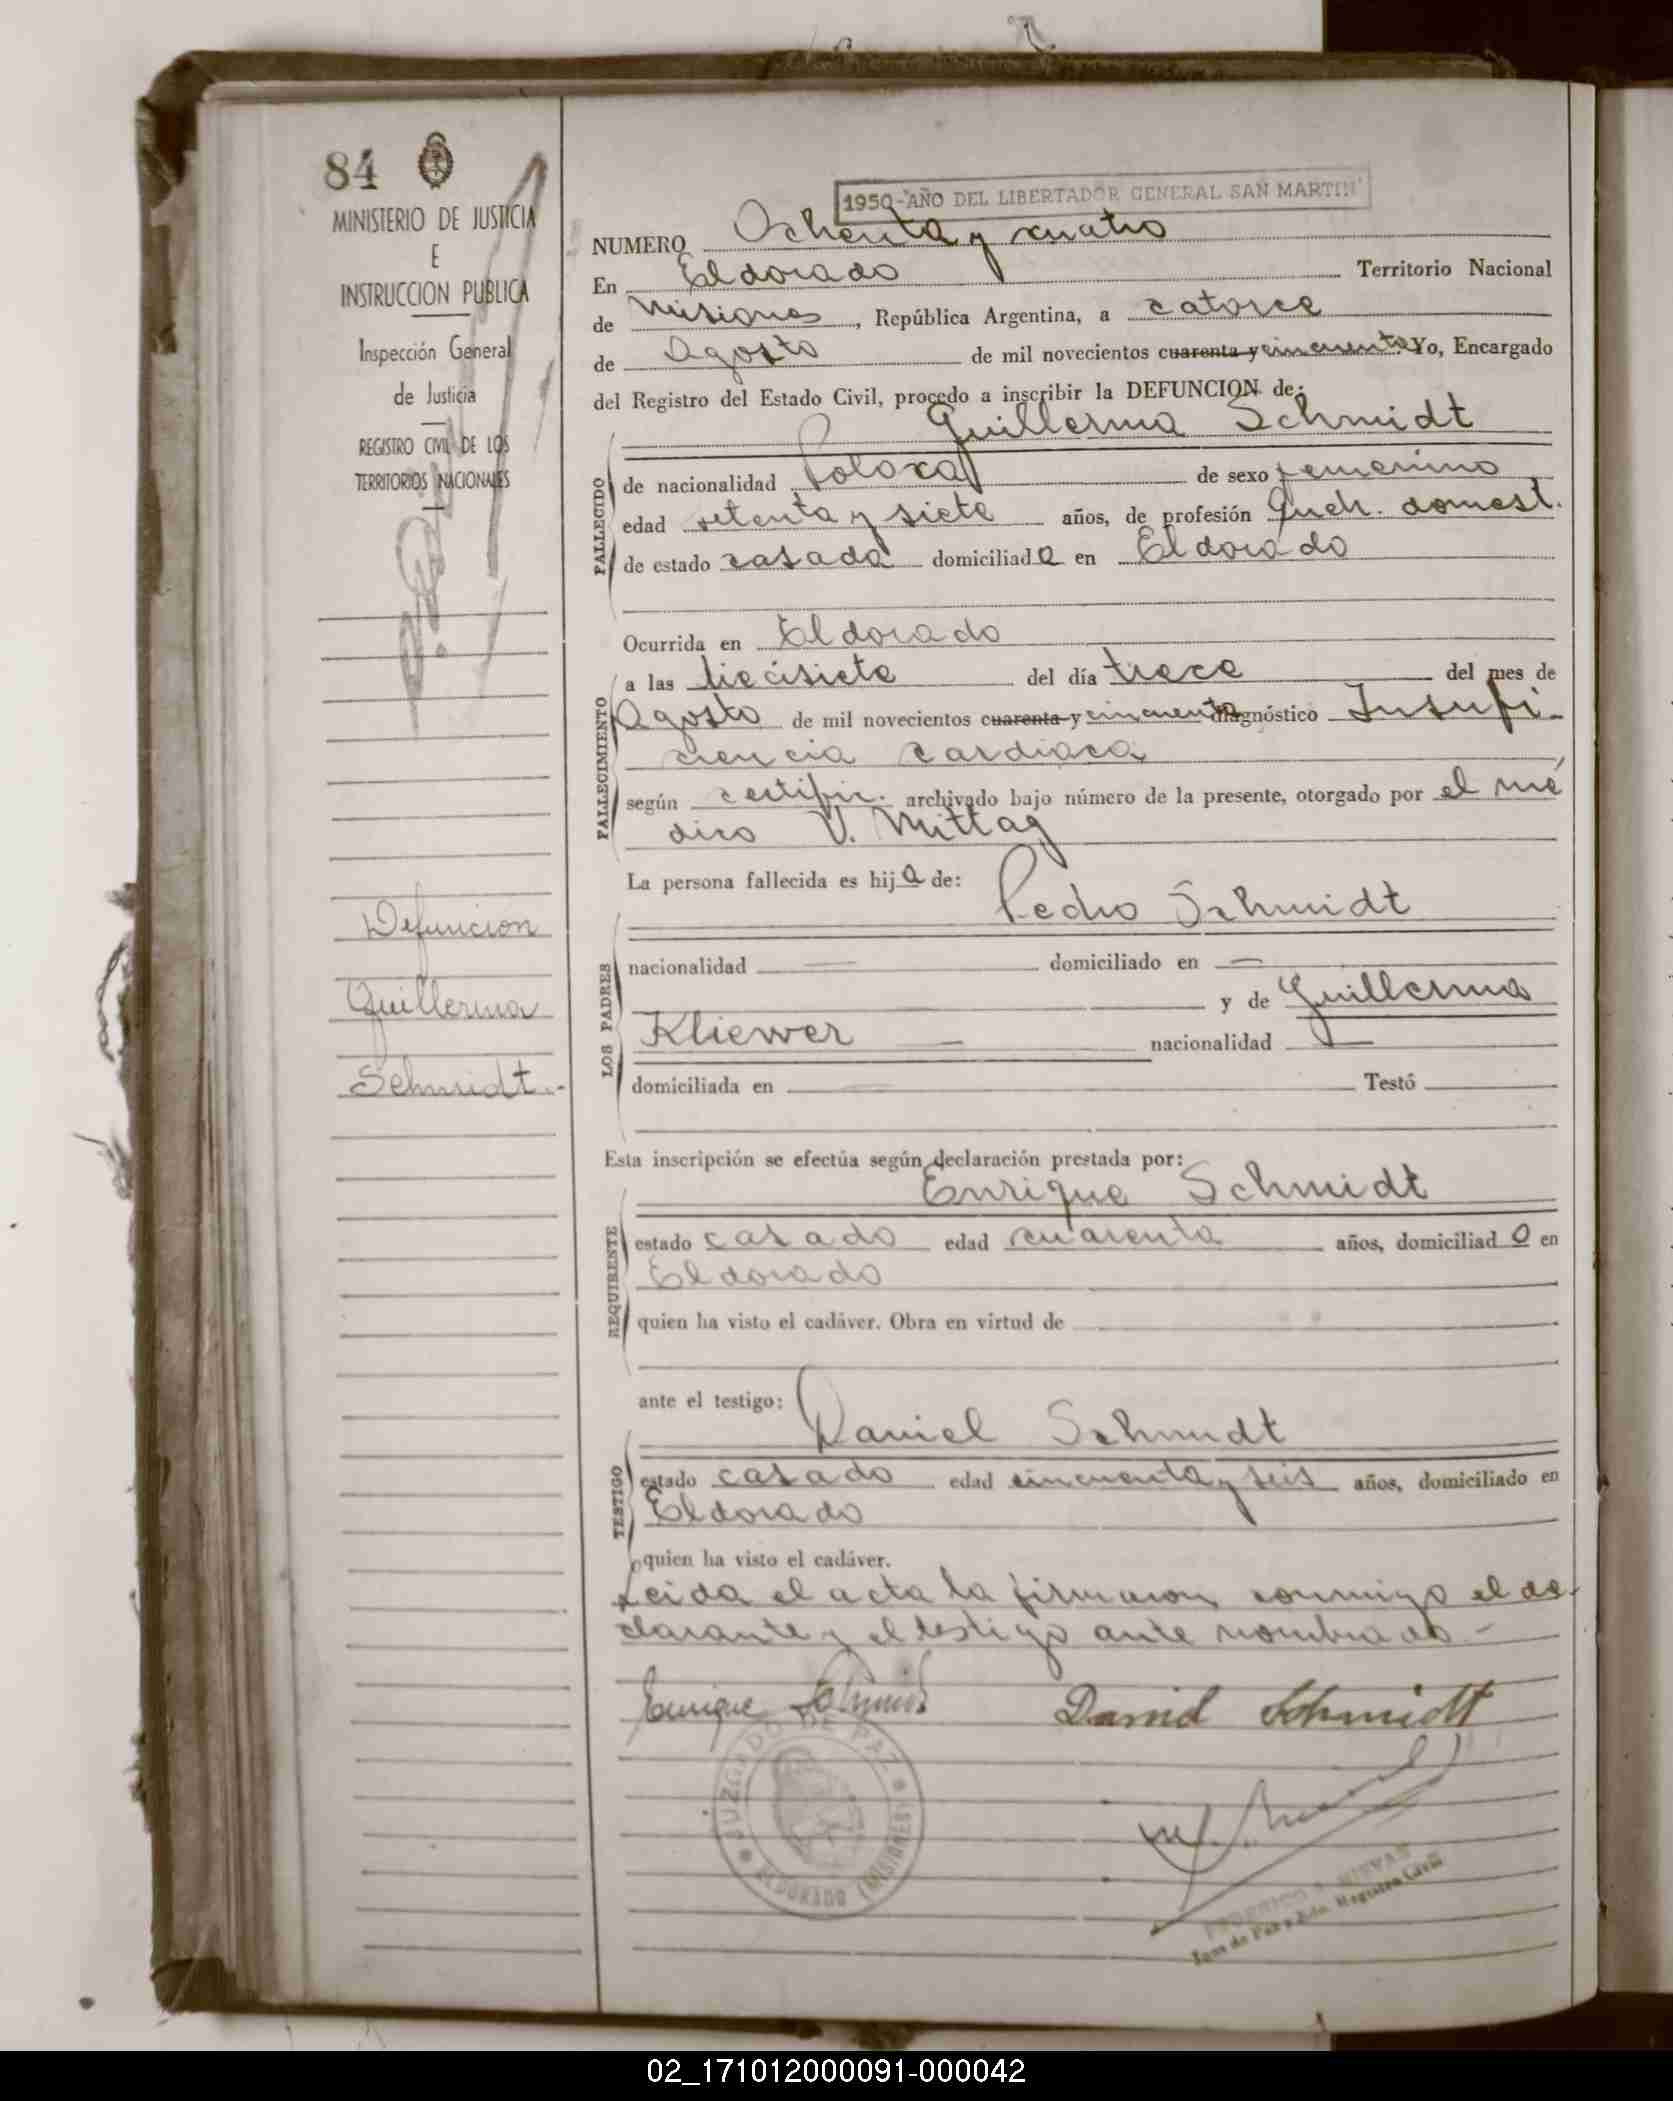 84
MINISTERIO DE JUSTICIA
E
INSTRUCCION PUBLICA
Inspección General
de Justicia
REGISTRO CIVIL DE LOS
TERRITORIOS NACIONALES
Defuncion
Guillerma
Schmidt.-
1950-"AÑO DEL LIBERTADOR GENERAL SAN MARTIN"
NUMERO Ochenta y cuatro
En Eldorado Territorio Nacional
de Misiones, República Argentina, a catorce
de Agosto de mil novecientos cuarenta y cincuenta Yo, Encargado
del Registro del Estado Civil, procedo a inscribir la DEFUNCION de:
Guillerma Schmidt
FALLECIDO
de nacionalidad Polaca de sexo femenino
edad setenta y siete años, de profesión Queh. domest.
de estado casada domiciliada en Eldorado
Ocurrida en Eldorado
FALLECIMIENTO
a las diecisiete del día trece del mes de
Agosto de mil novecientos cuarenta y cincuenta diagnóstico Insufi-
ciencia cardiaca
según certific. archivado bajo número de la presente, otorgado por el mé
dico V. Mittag
La persona fallecida es hija de:
Pedro Schmidt
LOS PADRES
nacionalidad — domiciliado en —
y de Guillerma
Kliewer — nacionalidad —
domiciliada en — Testó
Esta inscripción se efectúa según declaración prestada por:
Enrique Schmidt
REQUIRENTE
estado casado edad cuarenta años, domiciliado en
Eldorado
quien ha visto el cadáver. Obra en virtud de
ante el testigo:
Daniel Schmidt
TESTIGO
estado casado edad cincuenta y seis años, domiciliado en
Eldorado
quien ha visto el cadáver.
Leida el acta la firmaron conmigo el de-
clarante y el testigo ante nombrado.-
Enrique Schmidt Daniel Schmidt
JUZGADO DE PAZ
ELDORADO (MISIONES)
Juez de Paz y Edo. Registro Civil
02_171012000091-000042